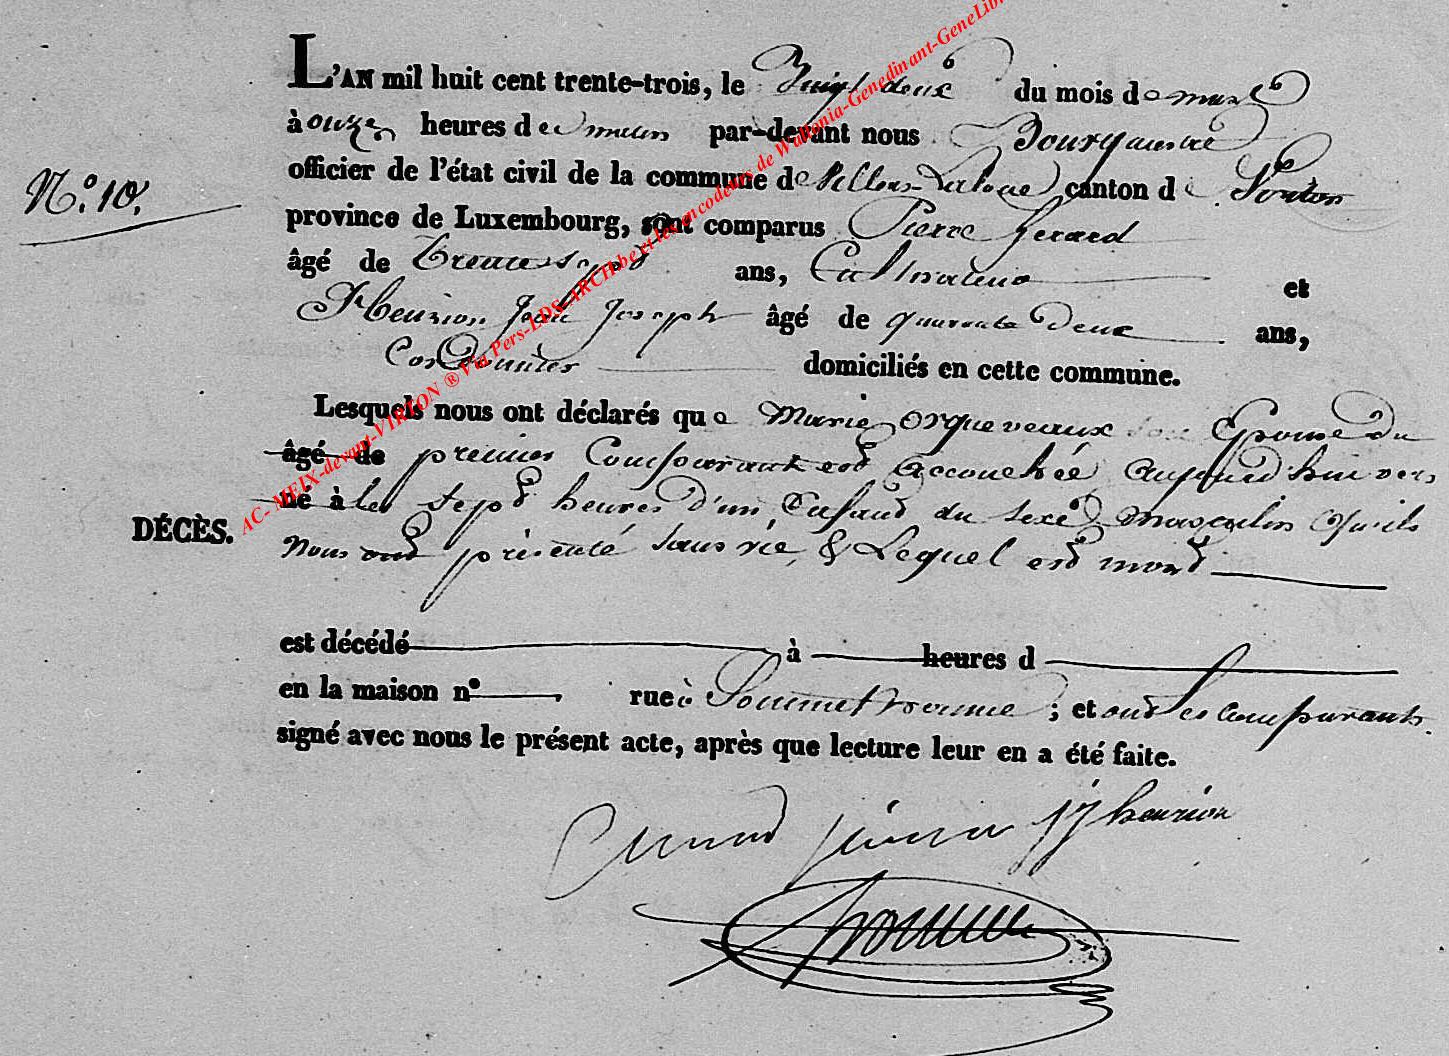 L'AN mil huit cent trente-trois, le Vingt deux du mois de mars
à onze heures de matin par-devant nous Bourgmestre
officier de l'état civil de la commune de Villers-Laloue canton de Virton
N.° 10.
province de Luxembourg, sont comparus Pierre Gerard
âgé de trente sept ans, Cultivateur et
Henrion Jean Joseph âgé de quarante deux ans,
Cordonnier domiciliés en cette commune.
Lesquels nous ont déclarés que Marie Orqueveaux Epouse du
âgé de premier Comparant est accouchée aujourd'hui vers
né à les sept heures d'un Enfant du sexe masculin qu'ils
DÉCÈS.
nous ont présenté sans vie, & Lequel est mort
est décédé à heures d
en la maison n° rue à Sommethonne ; et ont les Comparants
signé avec nous le présent acte, après que lecture leur en a été faite.
jj henrion
AC- MEIX-devant-VIRTON ® Via Pers-LDS-ARCH.be et les encodeurs de Wallonia-Genedinant-GeneLib